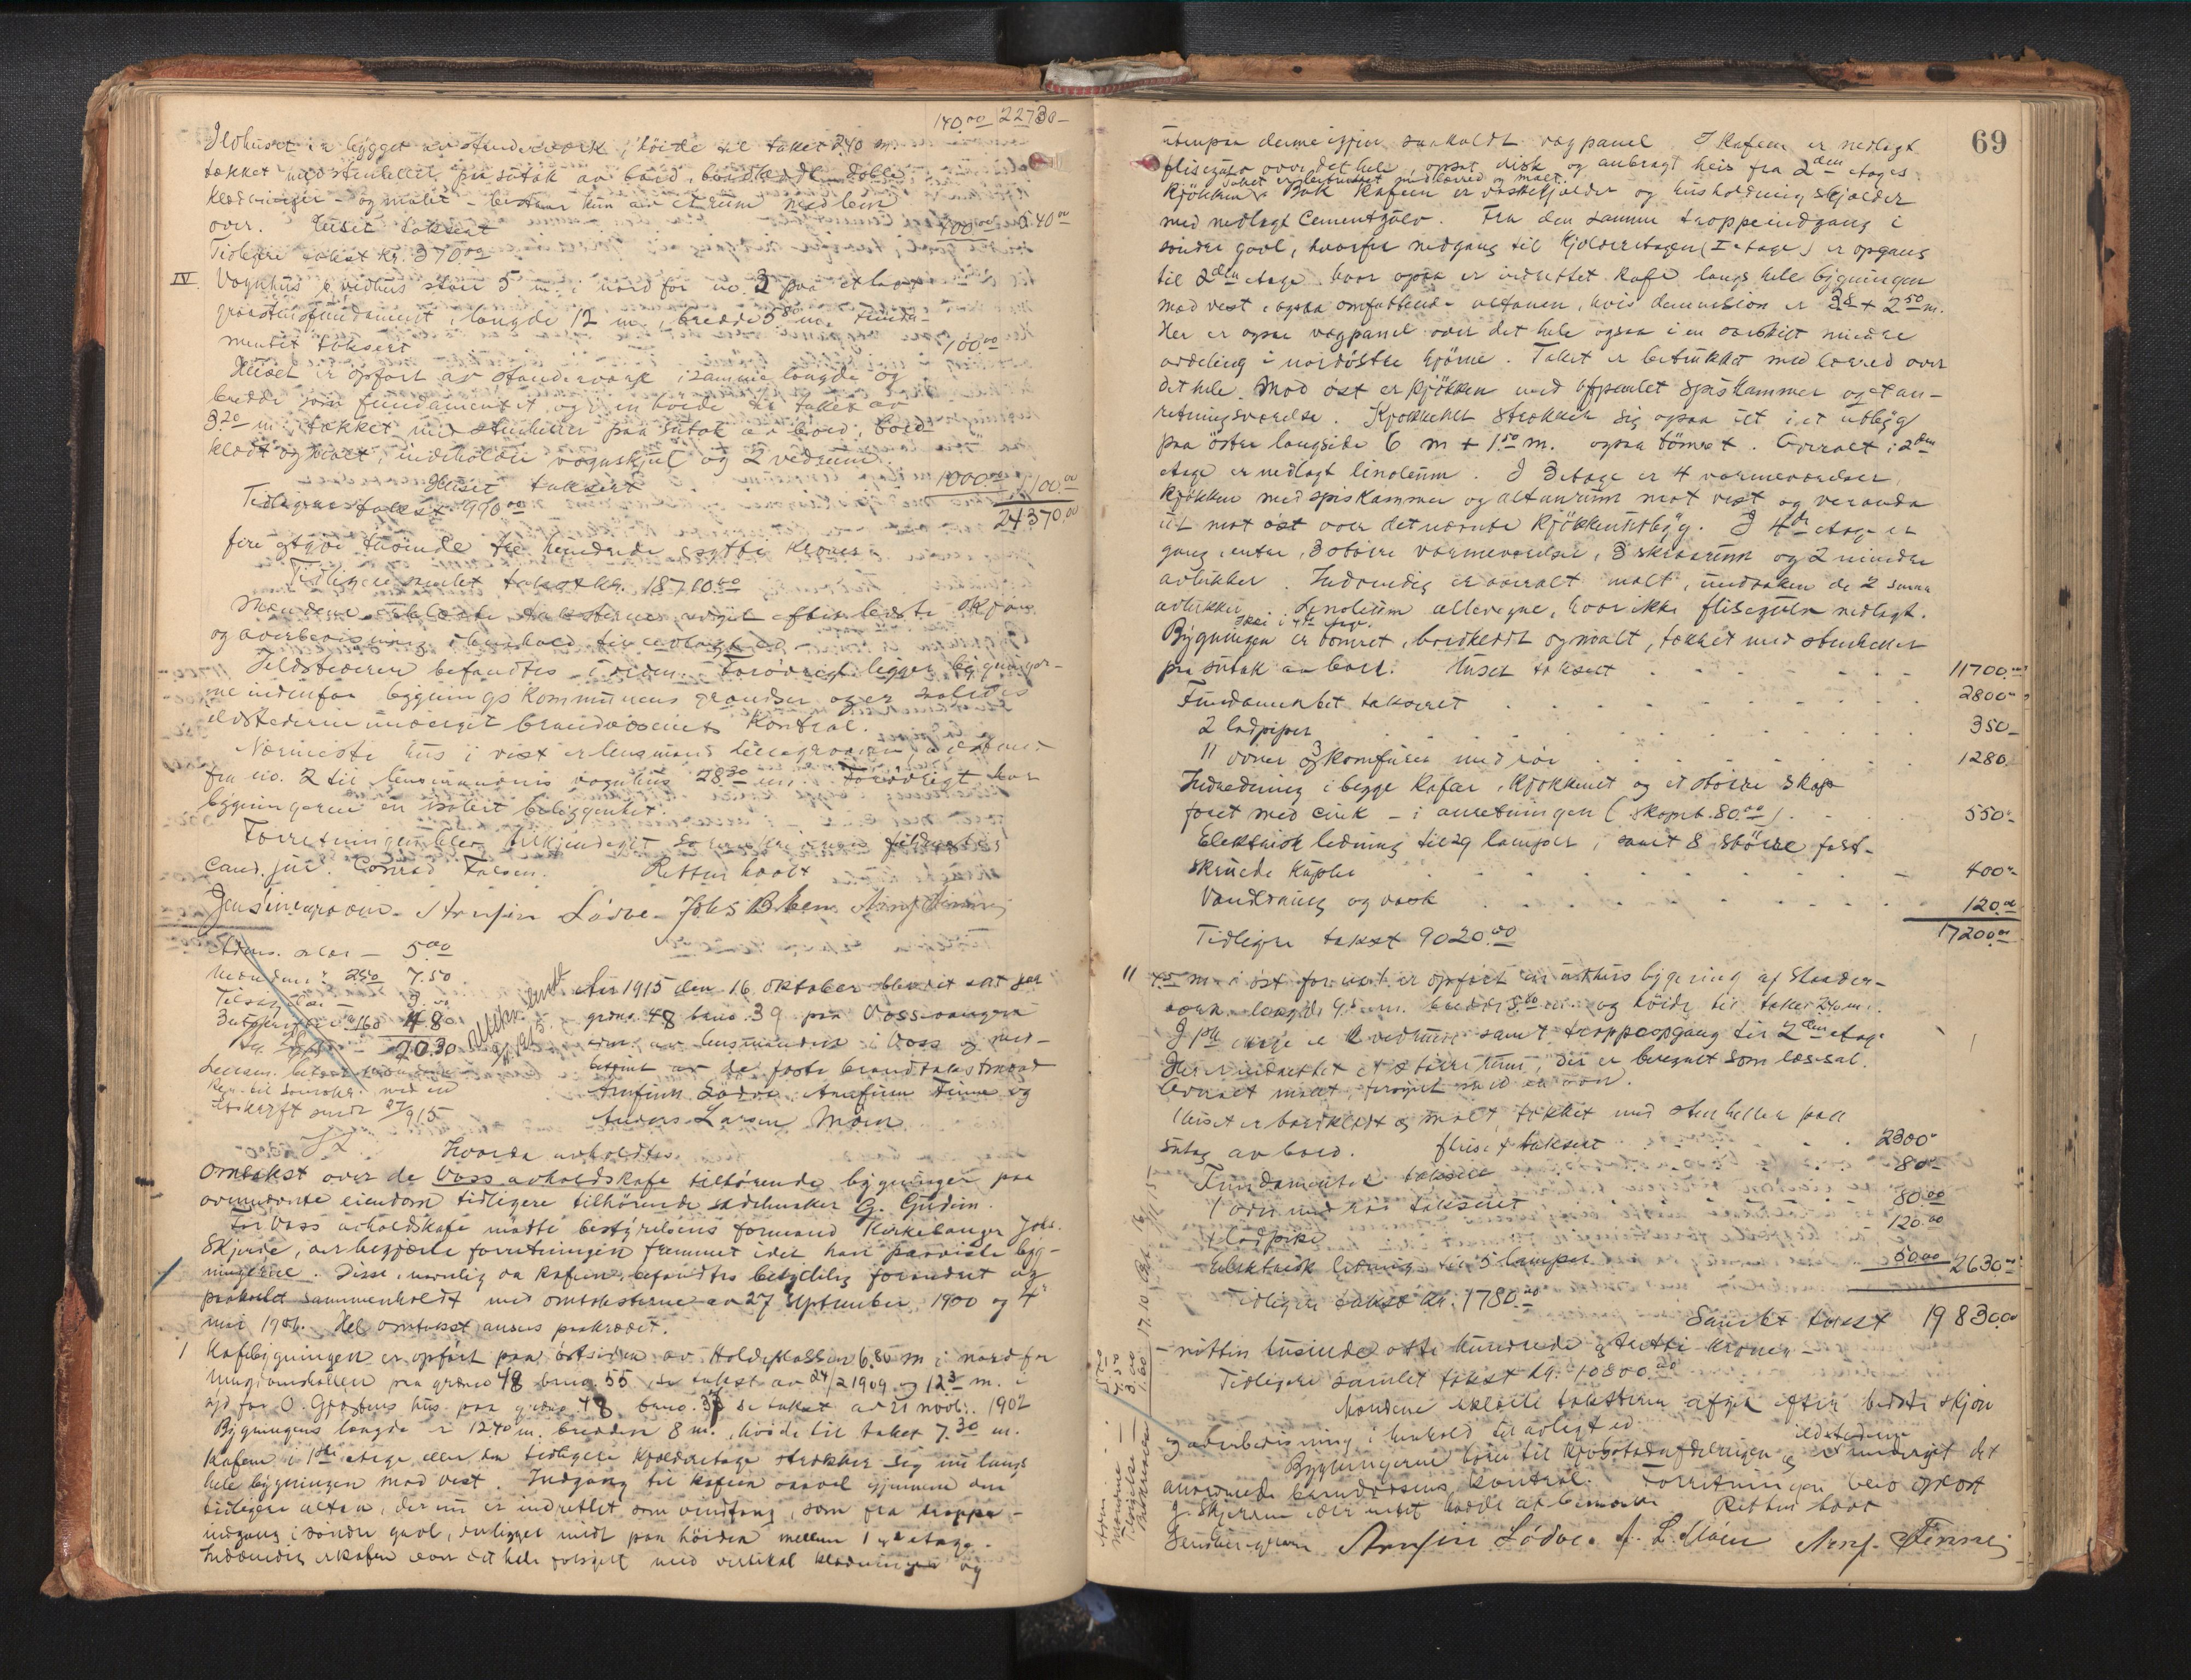 140.00 22730–
Ildhuset er bygget av stenderverk, høide til taket 2.40 m.
tækket med stenheller paa sutak av bord, bordklædt – doble
klædninger – og malet – bestaar kun av et rum med lem
over. Huset taksert 400.00 540.00
Tidligere takst kr. 370.00
IV. Vognhus & vedhus staar 5 m. i nord for no. 3 paa et lavt
graastensfundament, længde 12 m., bredde 5.80 m. Funda-
mentet taksert 100.00
Huset er opført av stenderverk i samme længde og
bredde som fundamentet, og i en høide til taket av
3.20 m., tækket med stenheller paa sutak av bord, bord-
klædt og malt, indeholder vognskjul og 2 vedrum.
Huset taksert 1000.00 1100.00
Tidligere takst 970.00 24370.00
fire og tyve tusinde tre hundrede sytti kroner
Tidligere samlet takst kr. 18710.00
Mændene erklærte taksterne avgit efter bedste skjøn
og overbevisning i henhold til avlagt ed.
Ildstederne befandtes i orden. Forøvrigt ligger bygninger-
ne indenfor bygningskommunens grændser og er saaledes
ildstederne undergit brandvæsenets kontrol.
Nærmeste hus i vest er lensmand Lillegraven,
fra no. 2 til lensmandens vognhus 28.30 m. Forøvrigt har
bygningerne en isolert beliggenhet.
Forretningen blev
Cand. jur. Conrad Falsen. Retten hævet
Jensinegraven – Arnfin Lødve – Johs B Moen Arnf Finne
Adm. – 5.00
Mændene 2.50 7.50
Tilsigelse – 3.00
1.60 4.80
20.30
Aar 1915 den 16. oktober blev ret sat paa
grno. 48 brno. 39 paa Vossevangen
adm. av lensmanden i Voss og med-
betjent av de faste brandtakstmænd
Arnfinn Lødve, Arnfinn Finne og
Anders Larsen Moen
Utskrift sendt 27/9 15
Hvorda avholdtes
Omtakst over de Voss avholdskafe tilhørende bygninger paa
ovennævnte eiendom tidligere tilhørende sadelmaker G. Gjedin.
For Voss avholdskafe møtte bestyrelsens formand Kirkesanger Johs.
Skjerve, der begjærte forretningen fremmet idet han paaviste byg-
ningerne. Disse, navnlig da kafeen, befandtes betydelig forandret og
paakostet sammenholdt med omtaksterne av 27 september 1900 og 4
mai 1906. Hel omtakst ansees paakrævet.
1 Kafebygningen er opført paa østsiden av Holdeplassen 6.80 m i nord for
Ungdomshallen paa grno 48 brno. 55, se takst av 24/2 1909 og 12.3 m. i
syd for O. Gjøsteins hus paa grno 48 brno. 37 se takst av 21 novbr. 1902
Bygningens længde er 12.40 m. bredden 8 m., høide til taket 7.30 m.
Kafeen i 1ste etage, eller den tidligere kjælderetage strækker sig nu langs
hele bygningen mod vest. Indgang til kafeen saavel gjennem den
tidligere altan, der nu er indrettet som vindfang, som fra trappe-
indgang i søndre gavl, beligger midt paa høiden mellem 1 og 2 etage.
Indvendig er kafeen over det hele forsynt med vertikal klædning og
69
utenpaa denne igjen saakaldt vægpanel. I kafeen er nedlagt
flisegulv over det hele, opsat disk og anbragt heis fra 2den etages
kjøkken. Taket er betrukket med lærred og malt. Bak kafeen er vaskekjælder og husholdningskjælder
med nedlagt Cementgulv. Fra den samme trappeindgang i
søndre gavl, hvorfra nedgang til kjælderetagen (I etage) er opgang
til 2den etage hvor ogsaa er indrettet kafe langs hele bygningen
mod vest, ogsaa omfattende altanen, hvis demension er 3.8 + 2.50 m.
Her er ogsaa vægpanel over det hele ogsaa i en særskilt mindre
avdeling i nordøstre hjørne. Taket er betrukket med lærred over
det hele. Mod øst er kjøkken med avpanlet spiskammer og et an-
retningsværelse. Kjøkkenet strækker sig ogsaa ut i et utbygg
paa østre langside 6 m + 1.50 m. ogsaa tømret. Overalt i 2den
etage er nedlagt linoleum. I 3 etage er 4 værelser,
kjøkken med spiskammer og altanrum mot vest og veranda
ut mot øst over det nævnte kjøkkenutbyg. I 4de etage er
gang, entre, 3 større værelser, 3 skraarum og 2 mindre
avlukker. Indvendig er overalt malt, undtaken de 2 smaa
avlukker. Linoleum allevegne, hvor ikke flisegulv nedlagt.
ikke i 4de etage.
Bygningen er tømret, bordklædt og malt, tækket med stenheller
paa sutak av bord. Huset taksert 11700.00
Fundamentet taksert 2800–
2 ladpiper 350–
11 ovner og 3 komfurer med rør 1280.
Indredning i begge kafeer, kjøkkenet og et større skap
foret med sink – i anretningen (skapet 80.00) 550–
Elektrisk ledning til 29 lamper, samt 8 større fast-
skruede kupler 400–
Vandledning og vask 120.00
Tidligere takst 9020.00 17200.00
11 4.5 m i øst for no. 1 er opført en uthusbygning af stender-
verk længde 9.5 m. bredde 5.60 m. og høide til taket
I 1ste etage er 2 vedrum samt trappeopgang til 2den etage
Her er indrettet et større rum, der er benyttet som læsesal.
Overalt malt, forsynt med en ovn.
Huset er bordklædt og malt, tækket med stenheller paa
sutag av bord. Huset taksert 2300–
Fundamentet taksert 80–
1 ovn med rør taksert 80.00
1 ladpipe 120.00
Elektrisk ledning til 5 lamper 50.00 2630–
Tidligere takst kr. 1780.00
Samlet takst 19830.00
– nitten tusinde otte hundrede og tretti kroner –
Tidligere samlet takst kr. 10800.00
Mændene erklærte taksterne afgit efter bedste skjøn
og overbevisning i henhold til avlagt ed.
Bygningerne hører til kjøbstedafdelingen og ildstederne er undergit det
anordnede brandvæsens kontrol. Forretningen blev oplæst
J. Skjerve idet intet havde at bemærke Retten hævet
Jensinegraven Arnfin Lødve. A. L. Moen Arnf. Finne
Adm. – 5.00
Mændene – 7.50
Tilsigelse – 3.00
1.60
17.10